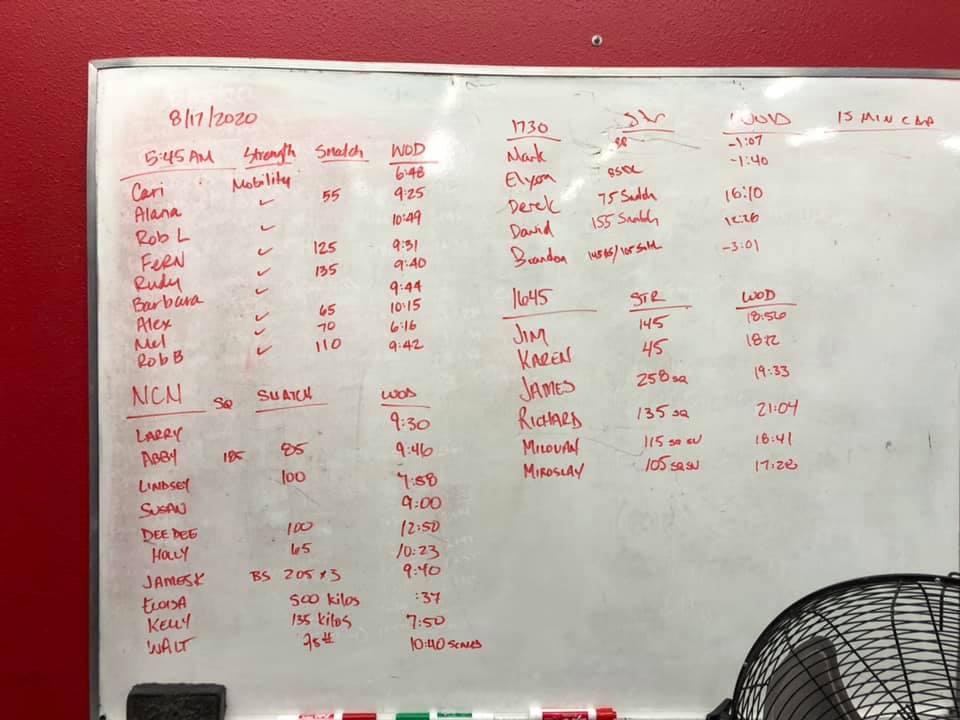 8/17/2020
5:45AM Strength Snatch WOD
Cari Mobility 6:48
Alana ✓ 55 9:25
Rob L ✓ 10:49
FERN ✓ 125 9:31
Rudy ✓ 135 9:40
Barbara ✓ 9:44
Alex ✓ 65 10:15
Mel ✓ 70 6:16
Rob B ✓ 110 9:42
NCN SQ SNATCH WOD
LARRY 9:30
ABBY 185 85 9:46
LINDSEY 100 7:58
SUSAN 9:00
DEEDEE 100 12:50
HOLLY 65 10:23
JAMESK BS 205 x 3 9:40
ELOISA 500 kilos :37
KELLY 135 kilos 7:50
WALT 75# 10:40
1730 WOD 15 MIN CAP
Mark -1:07
Elyson -1:40
Derek 75 Snatch 16:10
David 155 Snatch
Brandon -3:01
1645 STR WOD
JIM 145 18:56
KAREN 45
JAMES 258 SQ 19:33
RICHARD 135 SQ 21:04
MILOVAN 115 SQ SN 18:41
MIROSLAV 105 SQ SN 17:28